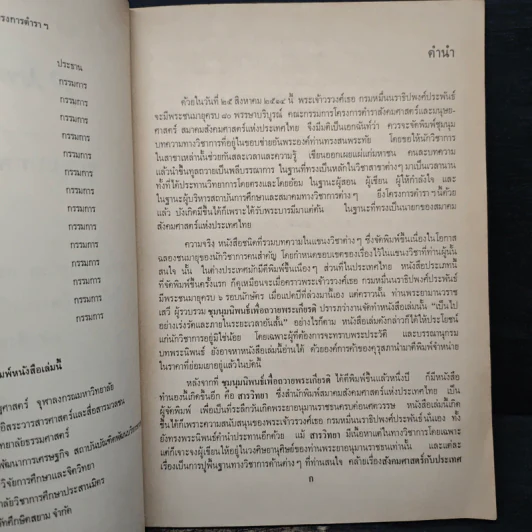 รงการตำรา ๆ
ประธาน
กรรมการ
กรรมการ
กรรมการ
กรรมการ
กรรมการ
กรรมการ
กรรมการ
กรรมการ
กรรมการ
กรรมการ
กรรมการ
กรรมการ
กรรมการ
กรรมการ
พิมพ์หนังสือเล่มนี้
ศาสตร์ จุฬาลงกรณมหาวิทยาลัย
อิสระวารสารศาสตร์และสื่อสารมวลชน
ทยาลัยธรรมศาสตร์
พัฒนาการเศรษฐกิจ สถาบันบัณฑิตพัฒน
ศึกษาและจิตวิทยา
ลัยวิชาการศึกษาประสานมิตร
ศึกษิตสยาม จำกัด
คำนำ
ด้วยในวันที่ ๒๕ สิงหาคม ๒๕๑๔ นี้ พระเจ้าวรวงศ์เธอ กรมหมื่นนราธิปพงศ์ประพันธ์
จะมีพระชนมายุครบ ๘๐ พรรษาบริบูรณ์ คณะกรรมการโครงการตำราสังคมศาสตร์และมนุษย-
ศาสตร์ สมาคมสังคมศาสตร์แห่งประเทศไทย จึงมีมติเป็นเอกฉันท์ว่า ควรจะจัดพิมพ์ชุมนุม
บทความทางวิชาการที่อยู่ในขอบข่ายอันพระองค์ท่านทรงสนพระทัย โดยขอให้นักวิชาการ
ในสาขาเหล่านั้นช่วยกันสละเวลาและความรู้ เขียนออกเผยแผ่แก่มหาชน คนละบทความ
แล้วนำขึ้นทูลถวายเป็นพลีบรรณาการ ในฐานที่ทรงเป็นหลักในวิชาสาขาต่างๆ มาเป็นเวลานาน
ทั้งที่ได้ประทานวิทยาการโดยตรงและโดยอ้อม ในฐานะผู้สอน ผู้เขียน ผู้ให้กำลังใจ และ
ในฐานะผู้บริหารสถาบันการศึกษาและสมาคมทางวิชาการต่างๆ ยิ่งโครงการตำราฯ นี้ด้วย
แล้ว บังเกิดมีขึ้นได้ก็เพราะได้รับพระบารมีมาแต่ต้น ในฐานะที่ทรงเป็นนายกของสมาคม
สังคมศาสตร์แห่งประเทศไทย
ความจริง หนังสือชนิดที่รวมบทความในแขนงวิชาต่างๆ ซึ่งจัดพิมพ์ขึ้นเนื่องในโอกาส
ฉลองชนมายุของนักวิชาการคนสำคัญ โดยกำหนดขอบเขตของเรื่องไว้ในแขนงวิชาที่ท่านผู้นั้น
สนใจ นั้น ในต่างประเทศมักมีตีพิมพ์ขึ้นเนืองๆ ส่วนที่ในประเทศไทย หนังสือประเภทนี้
ที่จัดพิมพ์ขึ้นครั้งแรก ก็ดูเหมือนจะเมื่อคราวพระเจ้าวรวงศ์เธอ กรมหมื่นนราธิปพงศ์ประพันธ์
มีพระชนมายุครบ ๖ รอบนักษัตร เมื่อแปดปีที่ล่วงมานี้เอง แต่คราวนั้น ท่านพระยามานวราช
เสวี ผู้รวบรวม ชุมนุมนิพนธ์เพื่อถวายพระเกียรติ ปรารภว่างานจัดทำหนังสือเล่มนั้น "เป็นไป
อย่างเร่งรัดและภายในระยะเวลาอันสั้น" อย่างไรก็ตาม หนังสือเล่มดังกล่าวก็ได้ให้ประโยชน์
แก่นักวิชาการอยู่มิใช่น้อย โดยเฉพาะผู้ที่ต้องการจะทราบพระประวัติ และบรรณานุกรม
บทพระนิพนธ์ ยังอาจหาหนังสือเล่มนี้อ่านได้ ด้วยองค์การค้าของคุรุสภานำมาตีพิมพ์จำหน่าย
ในราคาที่ย่อมเยาอยู่แล้วในบัดนี้
หลังจากที่ ชุมนุมนิพนธ์เพื่อถวายพระเกียรติ ได้ตีพิมพ์ขึ้นแล้วหนึ่งปี ก็มีหนังสือ
ทำนองนี้เกิดขึ้นอีก คือ สารวิทยา ซึ่งสำนักพิมพ์สมาคมสังคมศาสตร์แห่งประเทศไทย เป็น
ผู้จัดพิมพ์ เพื่อเป็นที่ระลึกวันเกิดพระยาอนุมานราชธนครบต่อนศตวรรษ หนังสือเล่มนี้เกิด
ขึ้นได้ก็เพราะความสนับสนุนของพระเจ้าวรวงศ์เธอ กรมหมื่นนราธิปพงศ์ประพันธ์นั้นเอง ทั้ง
ยังทรงพระนิพนธ์คำนำประทานอีกด้วย แม้ สารวิทยา มีเนื้อหาแต่ในทางวิชาการโดยเฉพาะ
แต่ก็เจาะจงผู้เขียนให้อยู่ในวงศิษยานุศิษย์ของท่านพระยาอนุมานราชธนเท่านั้น และแต่ละ
เรื่องเป็นการปูพื้นฐานทางวิชาการด้านต่างๆ ที่ท่านสนใจ คล้ายเรื่องสังคมศาสตร์กับประเทศ
ก